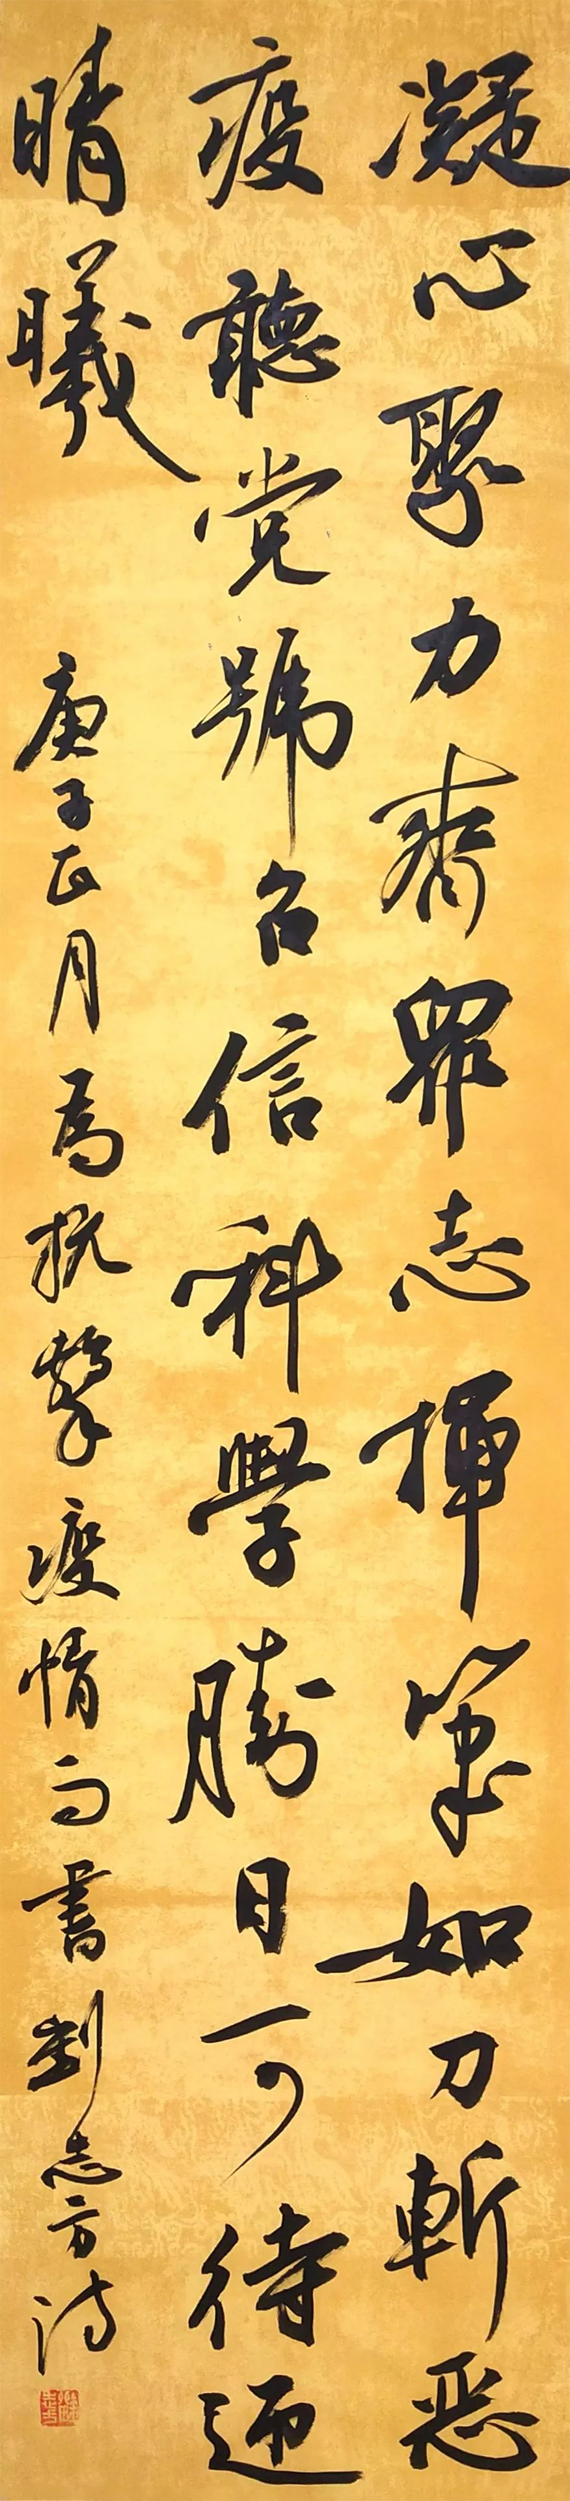 凝心聚力齊眾志揮筆如刀斬惡
疫聽党號召信科學勝日可待迎
晴曦
庚子正月為抗擊疫情而書劉志方詩